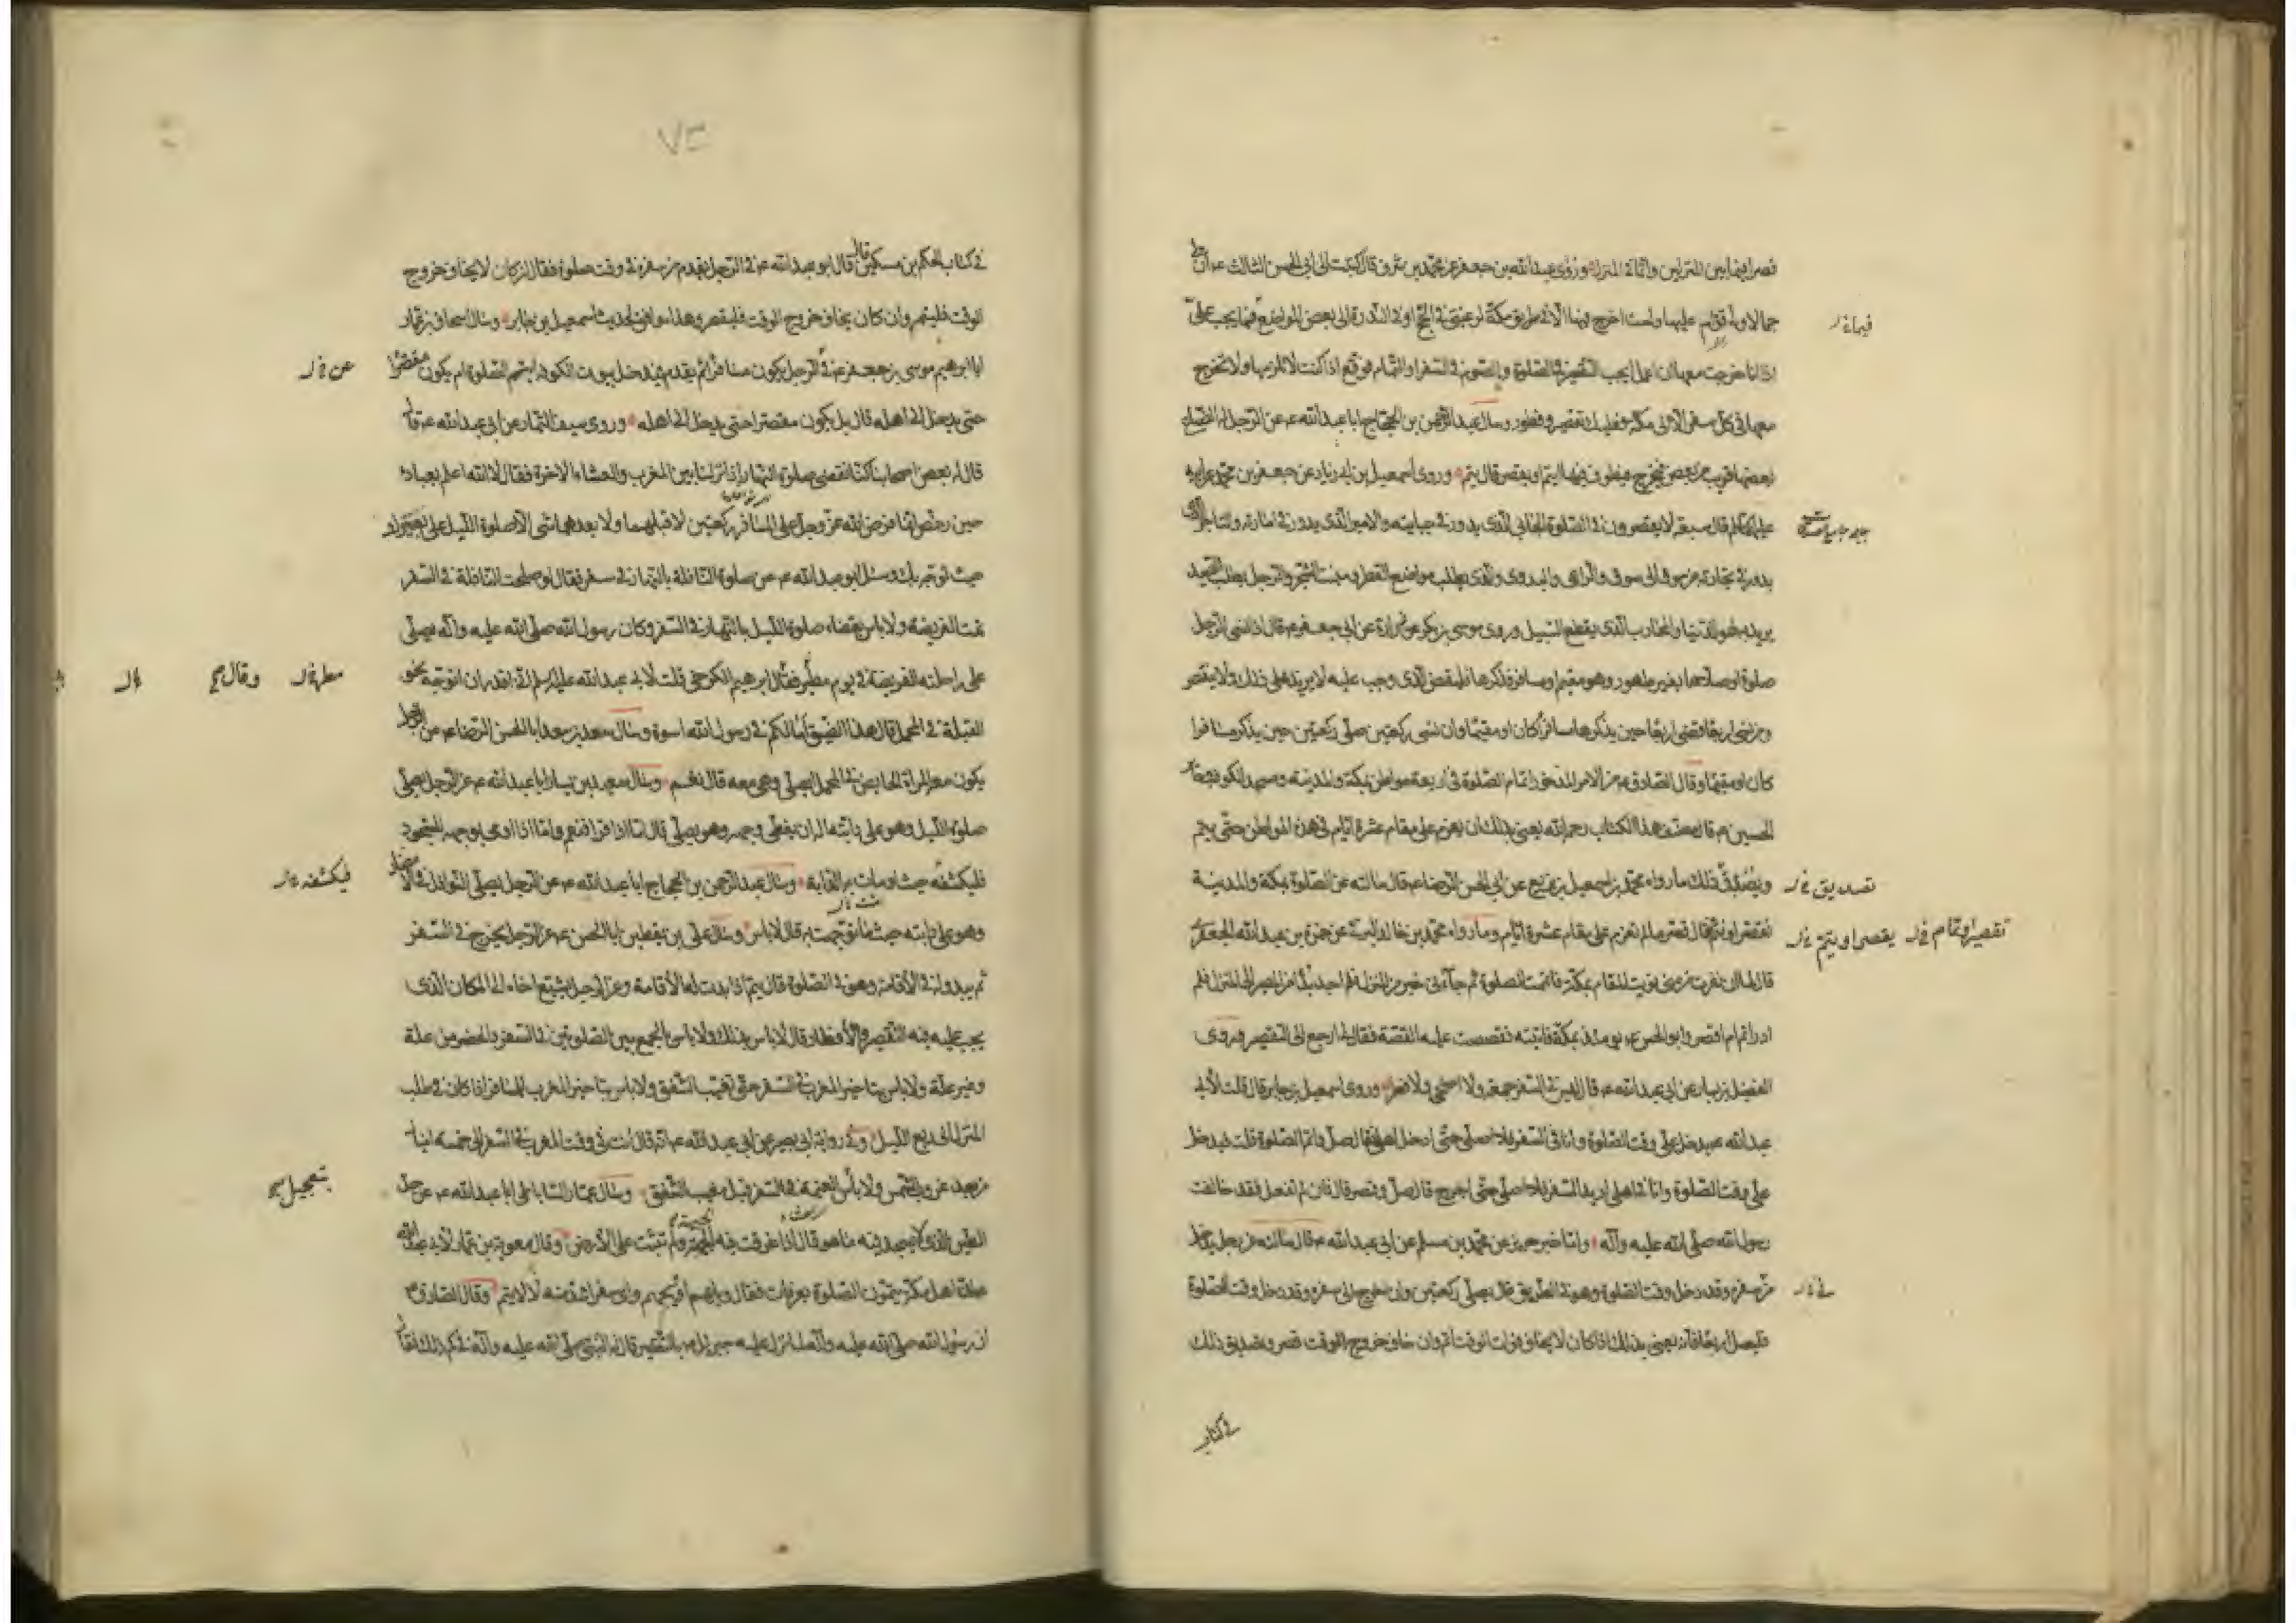 قصرا فيما بين المنزلين واتما في المنزل وروى عبدالله بن جعفر عن محمد بن شرف قال كتبت الى ابى الحسن الثالث ع ان لى
جمالا ولى قوام عليها ولست اخرج فيها الا فى طريق مكة لرغبتى فى الحج او فى الندرة الى بعض المواضع فما يجب على
فيما فى ل
اذا انا خرجت معها ان اعمل ايجب التقصير فى الصلوة والصوم فى السفر او التمام فوقع اذا كنت لا تلزمها ولا تخرج
معها فى كل سفر الا الى مكة فعليك تقصير وفطور وسال عبد الرحمن بن الحجاج ابا عبدالله ع عن الرجل له الضياع
بعضها قريب من بعض فيخرج فيطوف فيها ايتم او يقصر قال يتم وروى اسمعيل بن ابى زياد عن جعفر بن محمد عن ابيه
عليهما السلام قال سبعة لا يقصرون فى الصلوة الجابى الذى يدور فى جبايته والامير الذى يدور فى امارته والتاجر الذى
يدور فى تجارته من سوق الى سوق والراعى والبدوى الذى يطلب مواضع القطر ومنبت الشجر والرجل يطلب الصيد
يريد به لهو الدنيا والمحارب الذى يقطع السبيل وروى موسى بن بكر عن زرارة عن ابى جعفر ع قال اذا نسى الرجل
صلوة او صلاها بغير طهور وهو مقيم او مسافر فذكرها فليقض الذى وجب عليه لا يزيد على ذلك ولا ينقص
ومن نسى اربعا قضى اربعا حين يذكرها مسافرا كان او مقيما وان نسى ركعتين صلى ركعتين حين يذكر مسافرا
كان او مقيما وقال الصادق ع من الامر المذخور اتمام الصلوة فى اربعة مواطن بمكة والمدينة ومسجد الكوفة وحاير
الحسين ع قال مصنف هذا الكتاب رحمه الله يعنى بذلك ان يعزم على مقام عشرة ايام فى هذه المواطن حتى يتم
ويصدق ذلك ما رواه محمد بن اسمعيل بن بزيع عن ابى الحسن الرضا ع قال سالته عن الصلوة بمكة والمدينة
تصديق فى ل
تقصر او تتم قال قصر ما لم تعزم على مقام عشرة ايام وما رواه محمد بن خالد البرقى عن حمزة بن عبدالله الجعفرى
يقصر او يتم فى ل تقصير او تمام فى ل
قال لما ان نفرت من منى نويت المقام بمكة فاتممت الصلوة ثم جاءنى خبر من المنزل فلم اجد بدا من المصير الى المنزل فلم
ادر اتم ام اقصر وابو الحسن ع يومئذ بمكة فاتيته فقصصت عليه القصة فقال لى ارجع الى التقصير وروى
الفضيل بن يسار عن ابى عبدالله ع قال ليس فى السفر جمعة ولا اضحى ولا فطر وروى اسمعيل بن جابر قال قلت لابى
عبدالله ع يدخل على وقت الصلوة وانا فى السفر فلا اصلى حتى ادخل اهلى فقال صل واتم الصلوة قلت فيدخل
على وقت الصلوة وانا فى اهلى اريد السفر فلا اصلى حتى اخرج قال صل وقصر قال فان لم تفعل فقد خالفت
رسول الله صلى الله عليه وآله واما خبر حريز عن محمد بن مسلم عن ابى عبدالله ع قال سالته عن رجل يدخل
من سفره وقد دخل وقت الصلوة وهو فى الطريق قال يصلى ركعتين وان خرج الى سفره وقد دخل وقت الصلوة
فليصل اربعا فانه يعنى بذلك اذا كان لا يخاف فوات الوقت اتم وان خاف خروج الوقت قصر وتصديق ذلك
فى كتاب
٧٣
فى كتاب الحكم بن مسكين قال قال ابو عبدالله ع فى الرجل يقدم من سفره فى وقت صلوة فقال ان كان لا يخاف خروج
الوقت فليتم وان كان يخاف خروج الوقت فليقصر وهذا موافق لحديث اسمعيل بن جابر وسال اسحاق بن عمار
ابا ابرهيم موسى بن جعفر ع فى الرجل يكون مسافرا ثم يقدم فيدخل بيوت الكوفة ايتم الصلوة ام يكون مقصرا
عن فى ل
حتى يدخل الى اهله قال بل يكون مقصرا حتى يدخل الى اهله وروى سيف التمار عن ابى عبدالله ع قال
قال له بعض اصحابنا كنا نقضى صلوة النهار اذا نزلنا بين المغرب والعشاء الاخرة فقال لا الله اعلم بعباده
حين رخص انما فرض الله عز وجل على المسافر ركعتين لا قبلهما ولا بعدهما شى الا صلوة الليل على بعيرك
حيث توجه بك وسئل ابو عبدالله ع عن صلوة النافلة بالنهار فى سفر فقال لو صلحت النافلة فى السفر
تمت الفريضة ولا باس بقضاء صلوة الليل بالنهار فى السفر وكان رسول الله صلى الله عليه وآله يصلى
على راحلته الفريضة فى يوم مطير فقال ابرهيم الكرخى قلت لابى عبدالله عليه السلام انى اقدر ان اتوجه نحو
مطر فى ل وقال
القبلة فى المحمل قال هذا الضيق اما لكم فى رسول الله اسوة وسال سعد بن سعد ابا الحسن الرضا ع عن الرجل
يكون معه المراة الحايض فى المحمل ايصلى وهى معه قال نعم وسال سعيد بن يسار ابا عبدالله ع عن الرجل يصلى
صلوة الليل وهو على دابته اله ان يغطى وجهه وهو يصلى قال اما اذا قرا فنعم واما اذا اومى بوجهه للسجود
فليكشفه حيث اومات به الدابة وسال عبد الرحمن بن الحجاج ابا عبدالله ع عن الرجل يصلى النوافل فى الامصار
فيكشفه فى ل
وهو على دابته حيث ما توجهت به قال لا باس وسال على بن يقطين ابا الحسن ع عن الرجل يخرج فى السفر
ثم يبدو له فى الاقامة وهو فى الصلوة قال يتم اذا بدت له الاقامة وعن الرجل يشيع اخاه الى المكان الذى
يجب عليه فيه التقصير والافطار قال لا باس بذلك ولا باس بالجمع بين الصلوتين فى السفر والحضر من علة
وغير علة ولا باس بتاخير المغرب فى السفر حتى تغيب الشفق ولا باس بتاخير المغرب للمسافر اذا كان فى طلب
المنزل الى ربع الليل وفى رواية ابى بصير عن ابى عبدالله ع انه قال انت فى وقت المغرب فى السفر الى خمسة اميال
من بعد غروب الشمس ولا باس العتمة فى السفر قبل مغيب الشفق وسال عمار الساباطى ابا عبدالله ع عن حد
بتعجيل
الطين الذى لا يسجد فيه ما هو قال اذا غرقت فيه الجبهة ولم تثبت على الارض وقال معوية بن عمار لابى عبدالله
ان اهل مكة يتمون الصلوة بعرفات فقال ويلهم او ويحهم واى سفر اشد منه لا لا يتم وقال الصادق ع
ان رسول الله صلى الله عليه وآله لما نزل عليه جبرئيل بالتقصير قال له النبى صلى الله عليه وآله فى كم ذلك فقال